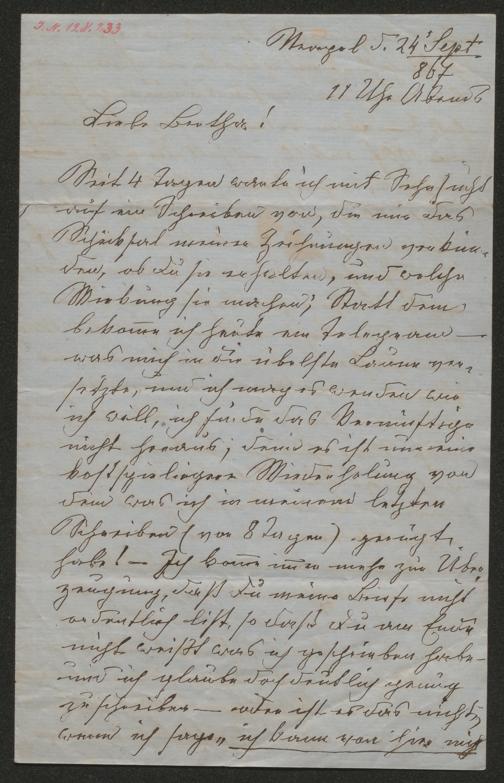 J. N. 128.733
Neapel d. 24t Sept
867
11 Uhr Abends
Liebe Bertha!
Seit 4 Tagen warte ich mit Sehnsucht
auf ein Schreiben von dir, die mir das
Schicksal meiner Zeichnungen verkün-
den, ob du sie erhalten, und welche
Wirkung sie machen; Statt dem
bekomme ich heute ein Telegram —
was mich in die übelste Laune ver-
setzte, und ich mag es wenden wie
ich will, ich finde das Vernünftige
nicht heraus; denn es ist nur eine
kostspieligere Wiederholung von
dem was ich in meinem letzten
Schreiben (vor 8 Tagen) gerügt
habe! — Ich komme immer mehr zur Über-
zeugung, daß du meine Briefe nicht
ordentlich list, so daß du am Ende
nicht weißt was ich geschrieben habe —
und ich glaube doch deutlich genug
zu schreiben — oder ist es das nicht,
wenn ich sage „ich kann von hier nicht